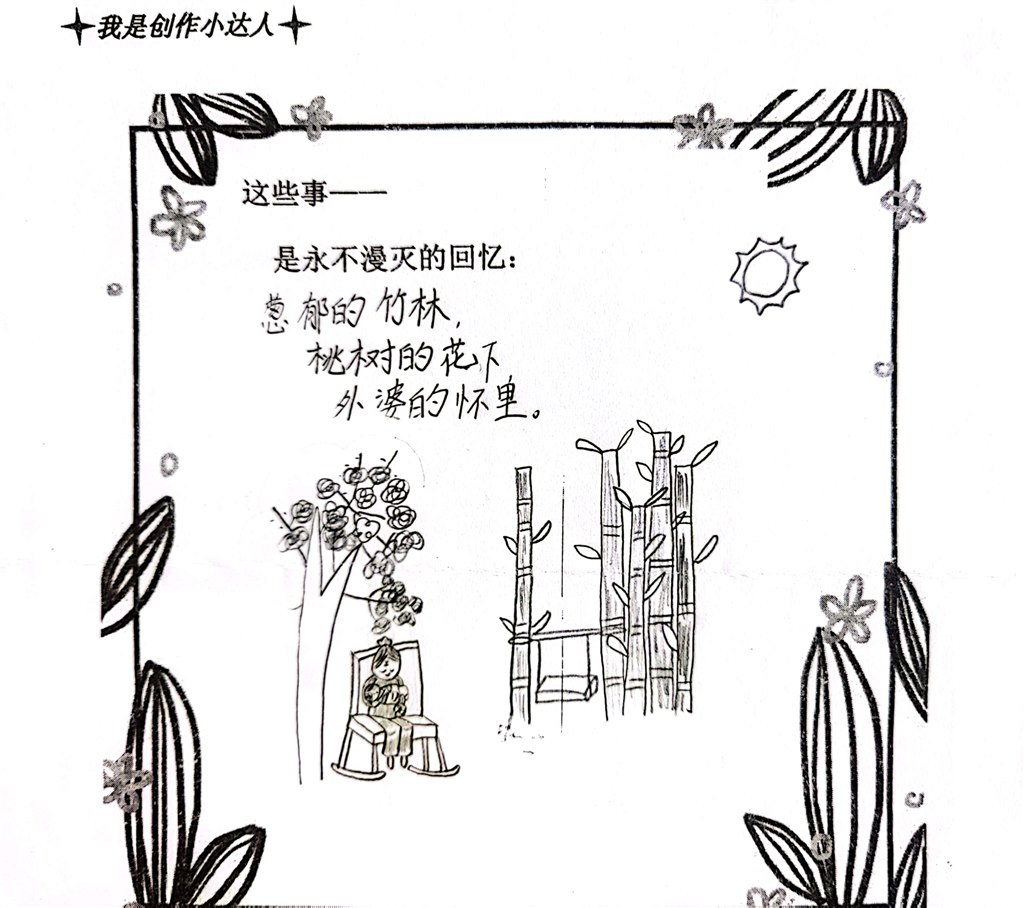 我是创作小达人
这些事——
是永不漫灭的回忆：
葱郁的竹林，
桃树的花下
外婆的怀里。